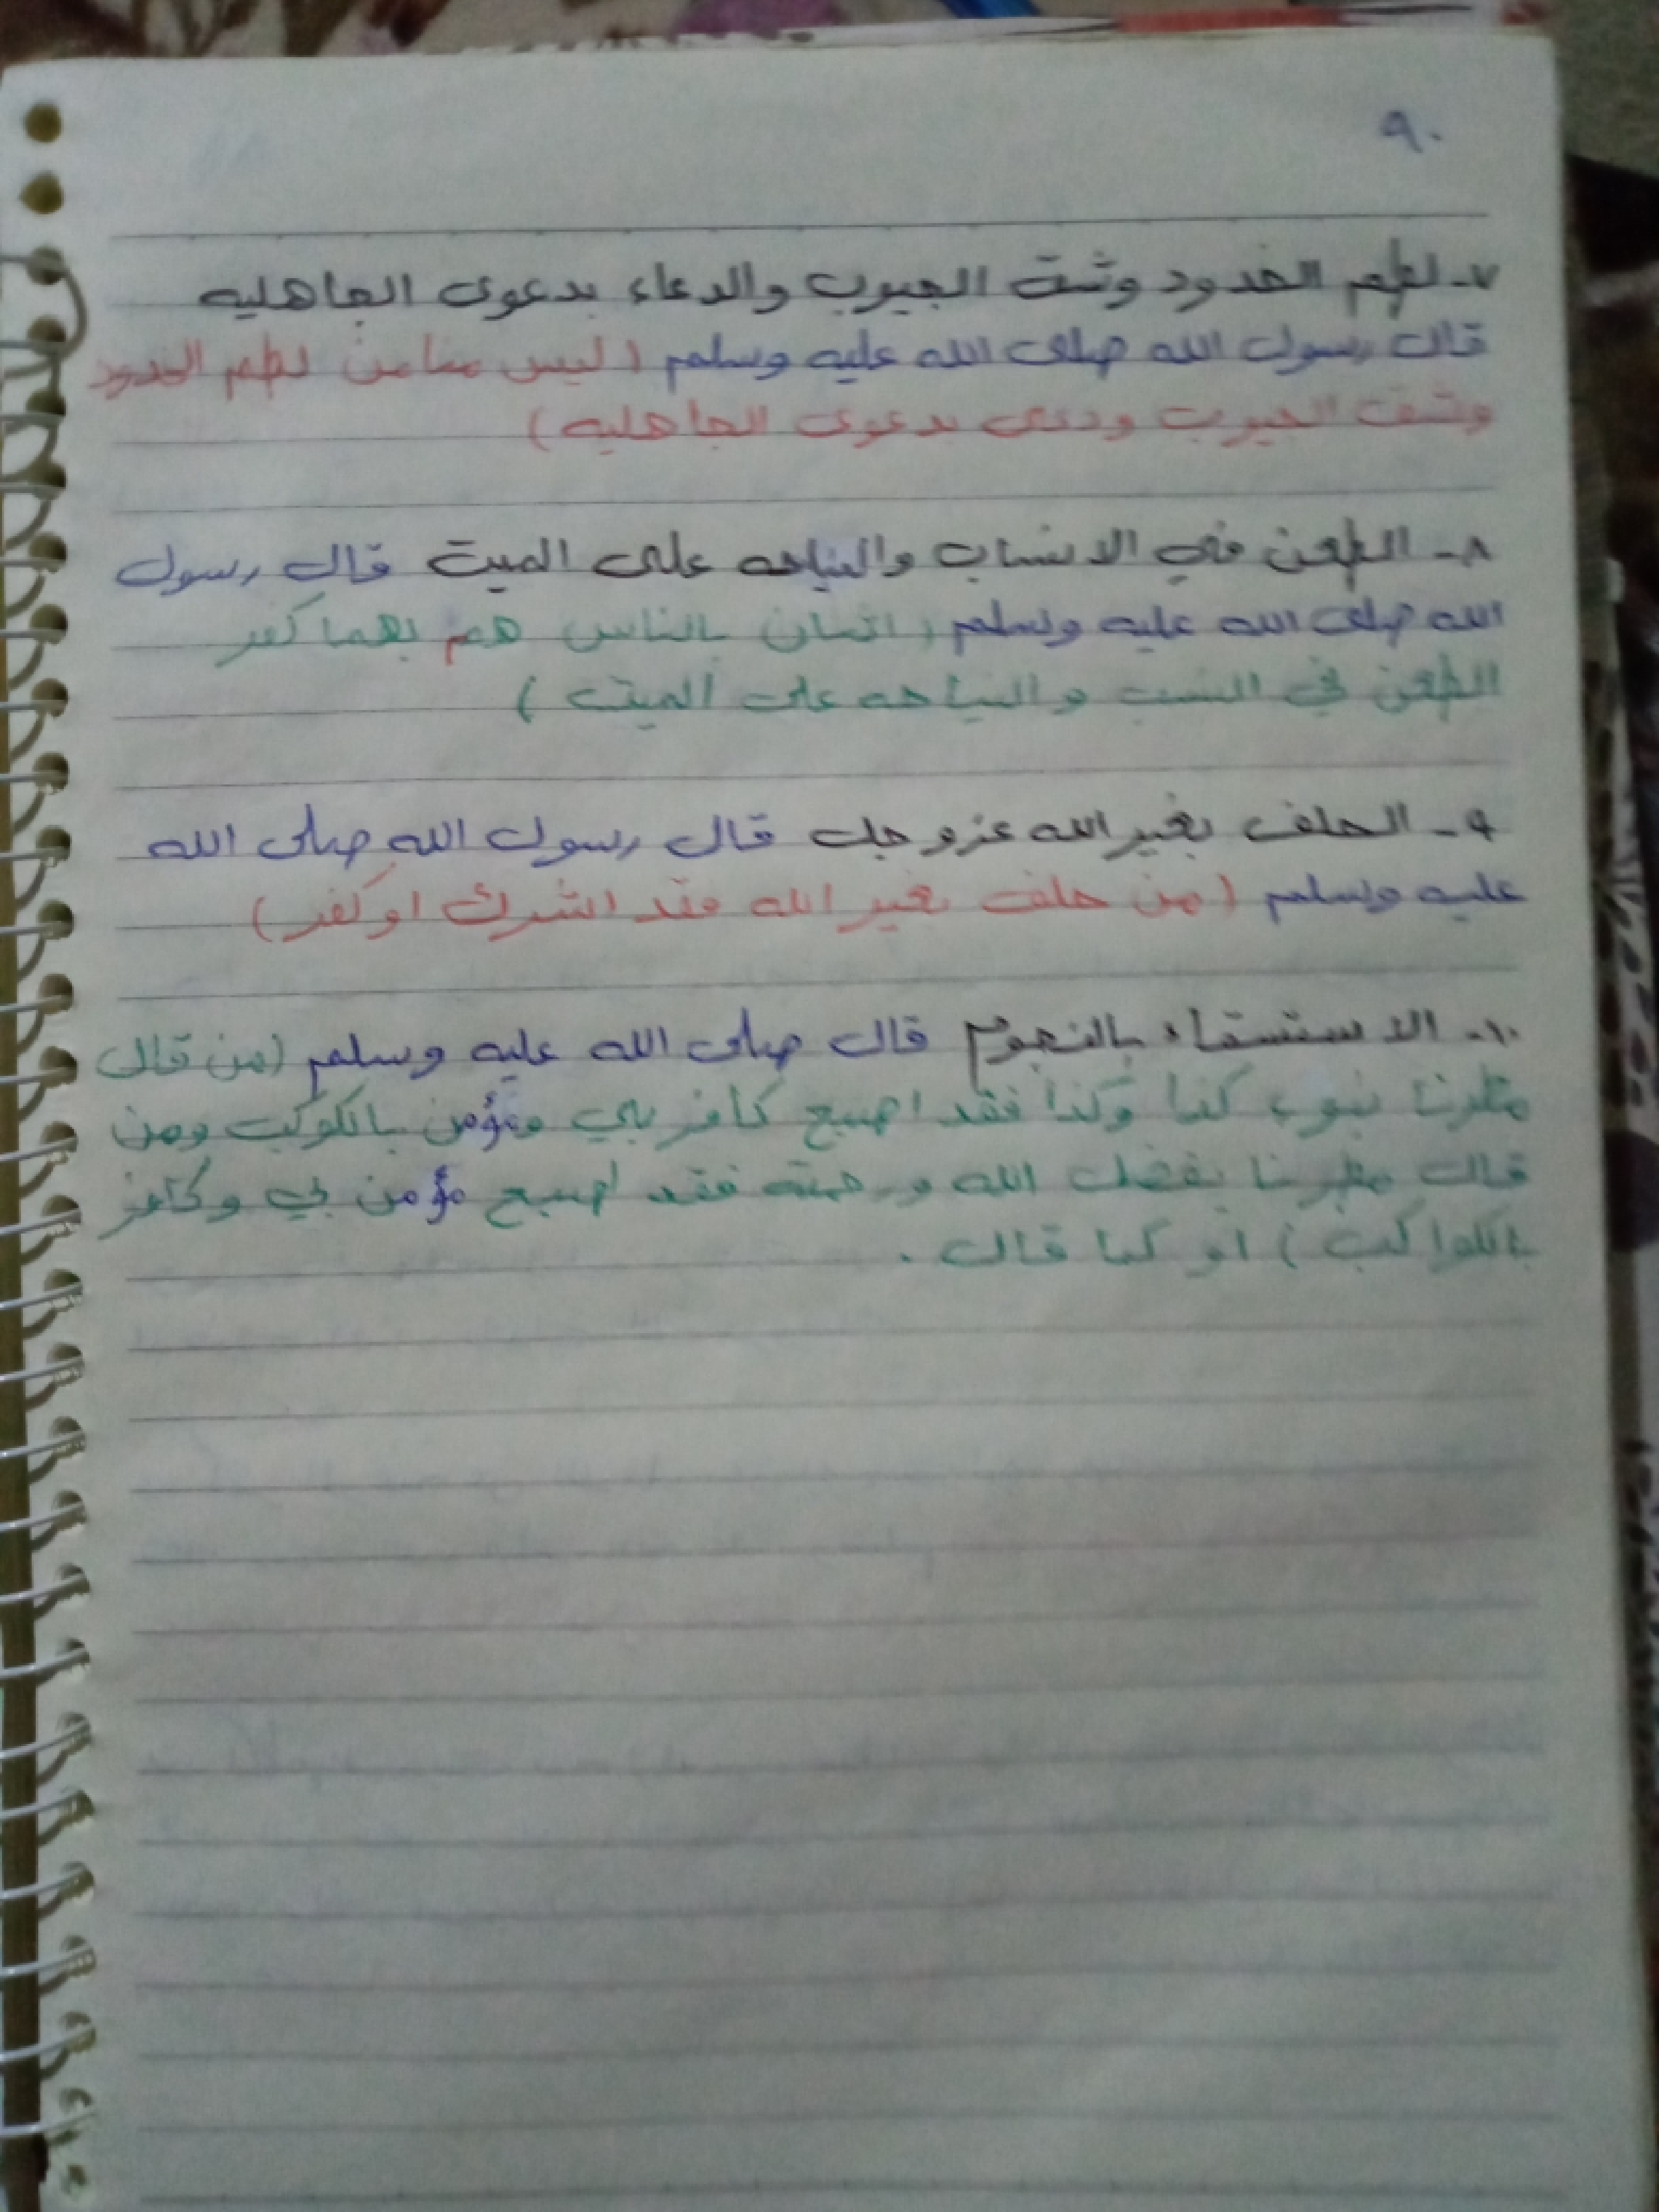 ٩٠
٧- لطم الخدود وشق الجيوب والدعاء بدعوى الجاهليه
قال رسول الله صلى الله عليه وسلم (ليس منا من لطم الخدود
وشق الجيوب ودعى بدعوى الجاهليه)
٨- الطعن في الانساب والنياحه على الميت قال رسول
الله صلى الله عليه وسلم (اثنان بالناس هم بهما كفر
الطعن في النسب والنياحه على الميت)
٩- الحلف بغير الله عز وجل قال رسول الله صلى الله
عليه وسلم (من حلف بغير الله فقد اشرك او كفر)
١٠- الاستسقاء بالنجوم قال صلى الله عليه وسلم (من قال
مطرنا بنوء كذا وكذا فقد اصبح كافر بي ومؤمن بالكوكب ومن
قال مطرنا بفضل الله ورحمته فقد اصبح مؤمن بي وكافر
بالكواكب) او كما قال.